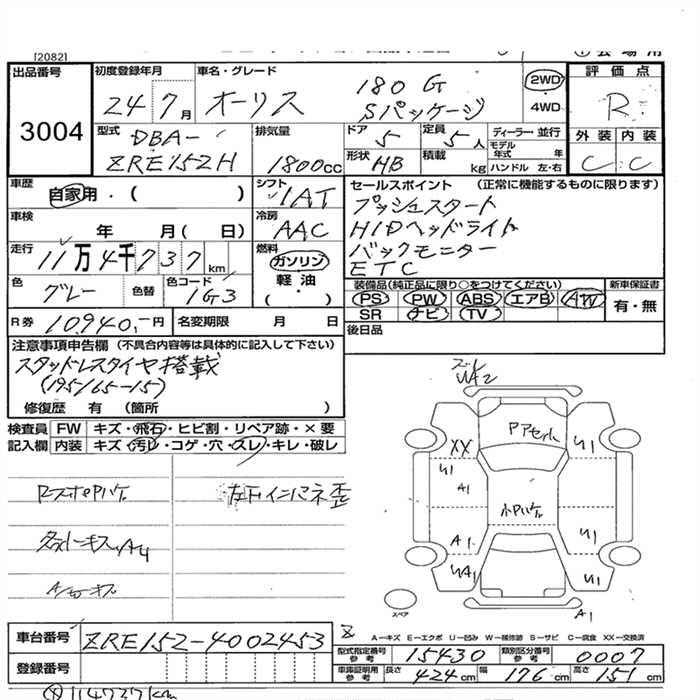 [2082]
出品番号
3004
初度登録年月
24年7月
車名・グレード
オーリス 180 G
Sパッケージ
2WD
4WD
評価点
R
外装 内装
C C
型式
DBA-
ZRE152H
排気量
1800cc
ドア 5
定員 5人
ディーラー・並行
モデル年式 年
ハンドル 左・右
形状 HB
積載 kg
車歴 自家用・( )
シフト 1AT
セールスポイント (正常に機能するものに限ります)
プッシュスタート
HIDヘッドライト
バックモニター
ETC
車検 年 月( 日)
冷房 AAC
走行 11万4千737km
燃料 ガソリン
軽油
・( )
色 グレー
色替
色コード 1G3
装備品(純正品に限り○をつけてください)
PS PW ABS エアB AW
SR ナビ TV
新車保証書
有・無
R券 10,940.-円
名変期限 月 日
後日品
注意事項申告欄(不具合内容等は具体的に記入して下さい)
スタッドレスタイヤ搭載
(195/65-15)
修復歴 有(箇所 )
検査員記入欄
FW キズ・飛石・ヒビ割・リペア跡・×要
内装 キズ・汚レ・コゲ・穴・スレ・キレ・破レ
左下インパネ歪
UA2
XX
U1
A1
A1
UA1
U1
U1
U1
A1
スペア
A-キズ E-エクボ U-凹み W-補修跡 S-サビ C-腐食 XX-交換済
車台番号 ZRE152-4002453
型式指定番号参考 15430
類別区分番号参考 0007
登録番号
車庫証明用参考 長さ 424cm 幅 176cm 高さ 151cm
114737km